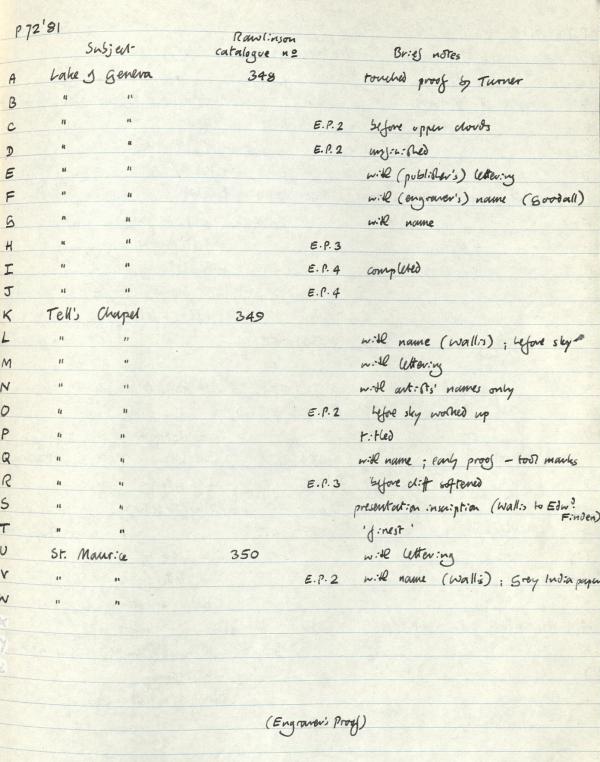 P72'81
Subject Rawlinson catalogue nº Brief notes
A Lake of Geneva 348 touched proof by Turner
B " "
C " " E.P.2 before upper clouds
D " " E.P.2 unfinished
E " " with (publisher's) lettering
F " " with (engraver's) name (Goodall)
G " " with name
H " " E.P.3
I " " E.P.4 completed
J " " E.P.4
K Tell's Chapel 349
L " " with name (Wallis) ; before sky
M " " with lettering
N " " with artists' names only
O " " E.P.2 before sky worked up
P " " titled
Q " " with name ; early proof – tool marks
R " " E.P.3 before cliff softened
S " " presentation inscription (Wallis to Edwd. Finden)
T " " 'finest'
U St. Maurice 350 with lettering
V " " E.P.2 with name (Wallis) ; Grey India paper
W " "
X
Y
Z
(Engraver's Proof)